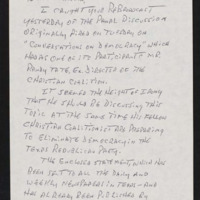 I CAUGHT YOUR REBROADCAST
YESTERDAY OF THE PANEL DISCUSSION
ORIGINALLY AIRED ON TUESDAY ON
"CONVERSATIONS ON DEMOCRACY" WHICH
HAD AS ONE OF ITS PARTICIPANTS MR.
RANDY TATE, EX. DIRECTOR OF THE
CHRISTIAN COALITION.
IT SEEMS THE HEIGHT OF IRONY
THAT HE SHOULD BE DISCUSSING THIS
TOPIC AT THE SAME TIME HIS FELLOW
CHRISTIAN COALITIONISTS ARE PREPARING
TO ELIMINATE DEMOCRACY IN THE
TEXAS REPUBLICAN PARTY.
THE ENCLOSED STATEMENT, WHICH HAS
BEEN SENT TO ALL THE DAILY AND
WEEKLY NEWSPAPERS IN TEXAS - AND
HAS ALREADY BEEN PUBLISHED BY